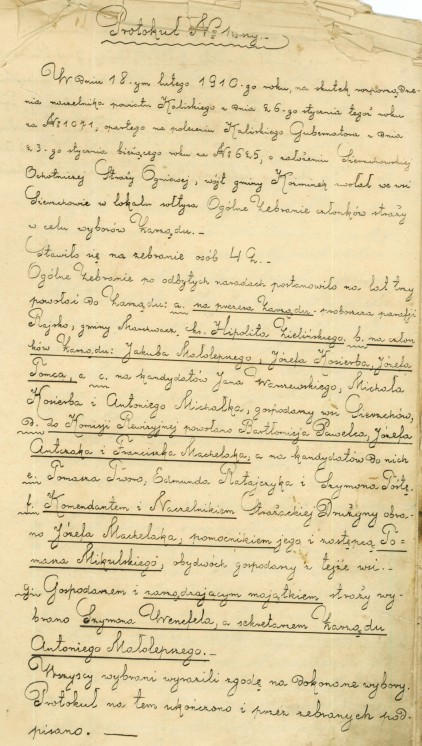 Protokuł № 1wszy.-
W dniu 18-ym lutego 1910-go roku, na skutek rozporządze-
nia naczelnika powiatu Kaliskiego z dnia 26-go stycznia tegoż roku
za № 1071, opartego na poleceniu Kaliskiego Gubernatora z dnia
23-go stycznia bieżącego roku za № 625, o założeniu
Ochotniczej Straży Ogniowej, wójt gminy Koźminek zwołał we wsi
w lokalu sołtysa Ogólne Zebranie członków straży
w celu wyborów Zarządu.-
Stawiło się na zebranie osób 42.-
Ogólne Zebranie po odbytych naradach postanowiło na lat trzy
powołać do Zarządu: a. na prezesa Zarządu - proboszcza parafji
Rajsko, gminy ks. Hipolita Zielińskiego, b. na człon
ków Zarządu: Jakuba Małolepszego, Józefa Kosierba, Józefa
Tomca, a c. na kandydatów Jana Warszewskiego, Michała
Kosierba i Antoniego Michalka, gospodarzy wsi
d. do Komisji Rewizyjnej powołano Bartłomieja Pawelca, Józefa
Antczaka i Franciszka Machelaka, a na kandydatów do nich
e. Tomasza Edmunda Ratajczyka i Szymona
f. Komendantem i Naczelnikiem Strażackiej Drużyny obra-
no Józefa Machelaka, pomocnikiem jego i zastępcą Ro-
mana Mikulskiego, obydwóch gospodarzy z tejże wsi.-
g. Gospodarzem i zarządzającym majątkiem straży wy-
brano Szymona a sekretarzem Zarządu
Antoniego Małolepszego.-
Wszyscy wybrani wyrazili zgodę na dokonane wybory.
Protokuł na tem ukończono i przez zebranych pod-
pisano. —